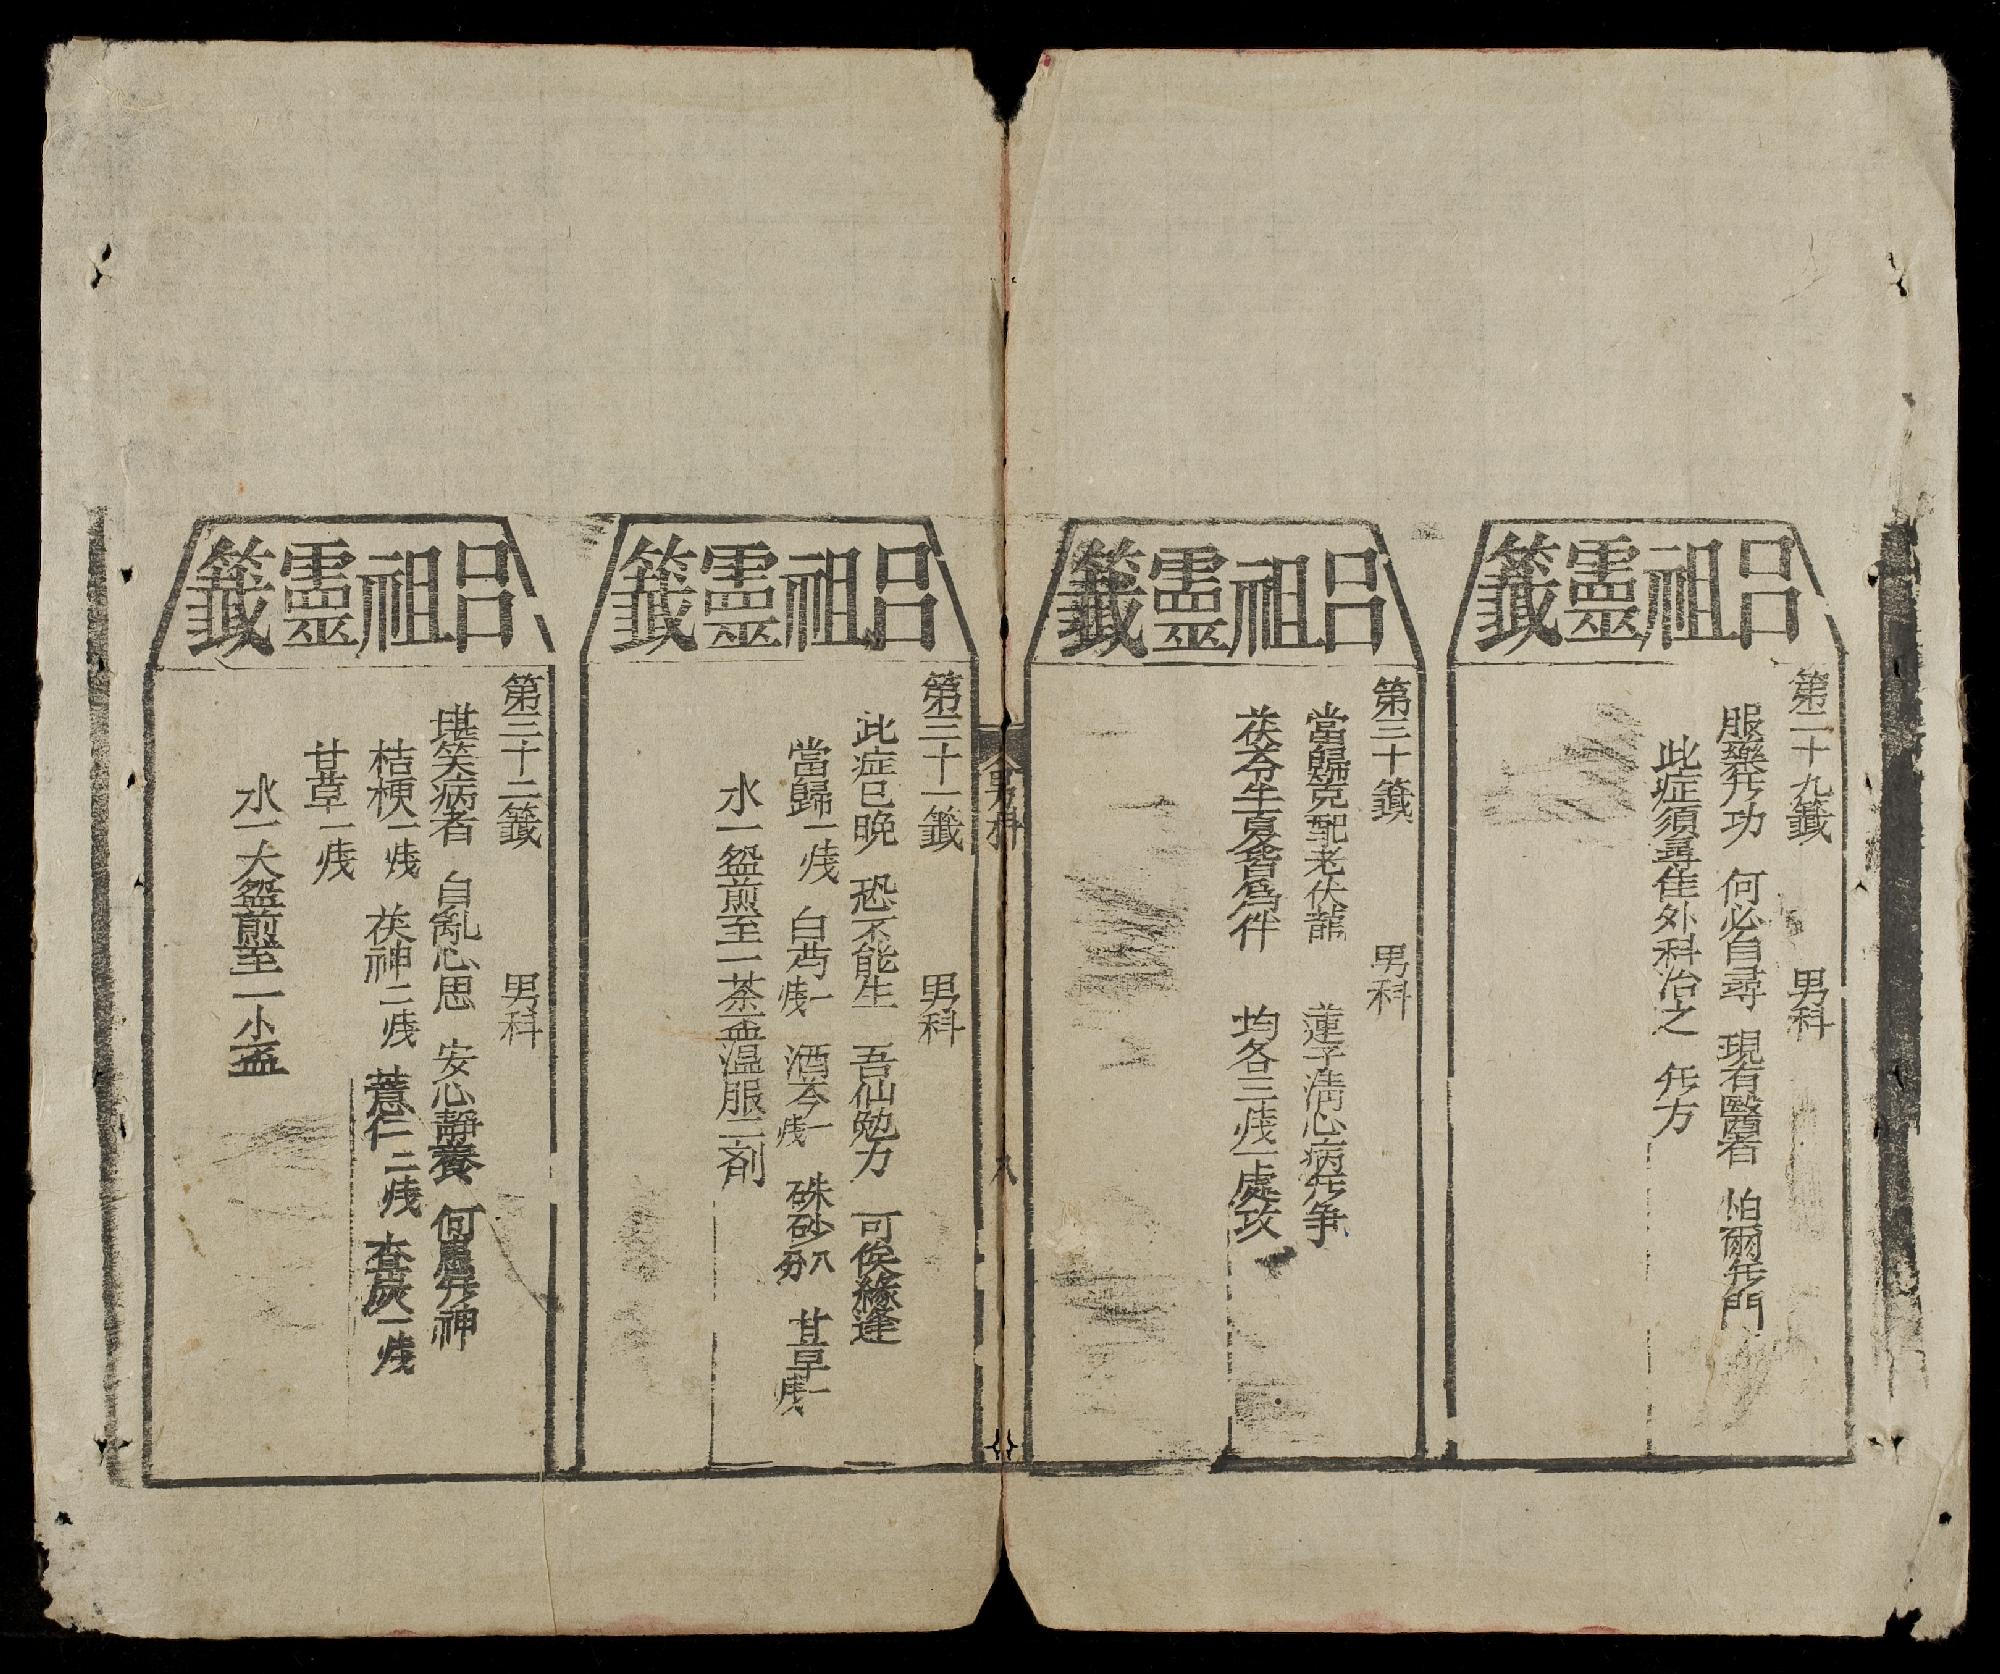 呂祖靈籤
第二十九籤 男科
服藥無功 何必自尋 現有醫者 怕爾無門
此症須尋隹外科治之 無方
呂祖靈籤
第三十籤 男科
當歸克配老伏龍 蓮子清心病無爭
茯苓生夏皆為伴 均各三㦮一處攻
男科
八
呂祖靈籤
第三十一籤 男科
此症已晚 恐不能生 吾仙勉力 可俟緣逢
當歸一㦮 白芍一㦮 酒芩一㦮 硃砂八分 甘草一㦮
水一盌煎至一茶盅溫服二剤
呂祖靈籤
第三十二籤 男科
堪笑病者 自亂心思 安心靜養 何愚無神
桔梗一㦮 茯神二㦮 薏仁二㦮 查炭一㦮
甘草一㦮
水一大盌煎至一小盃